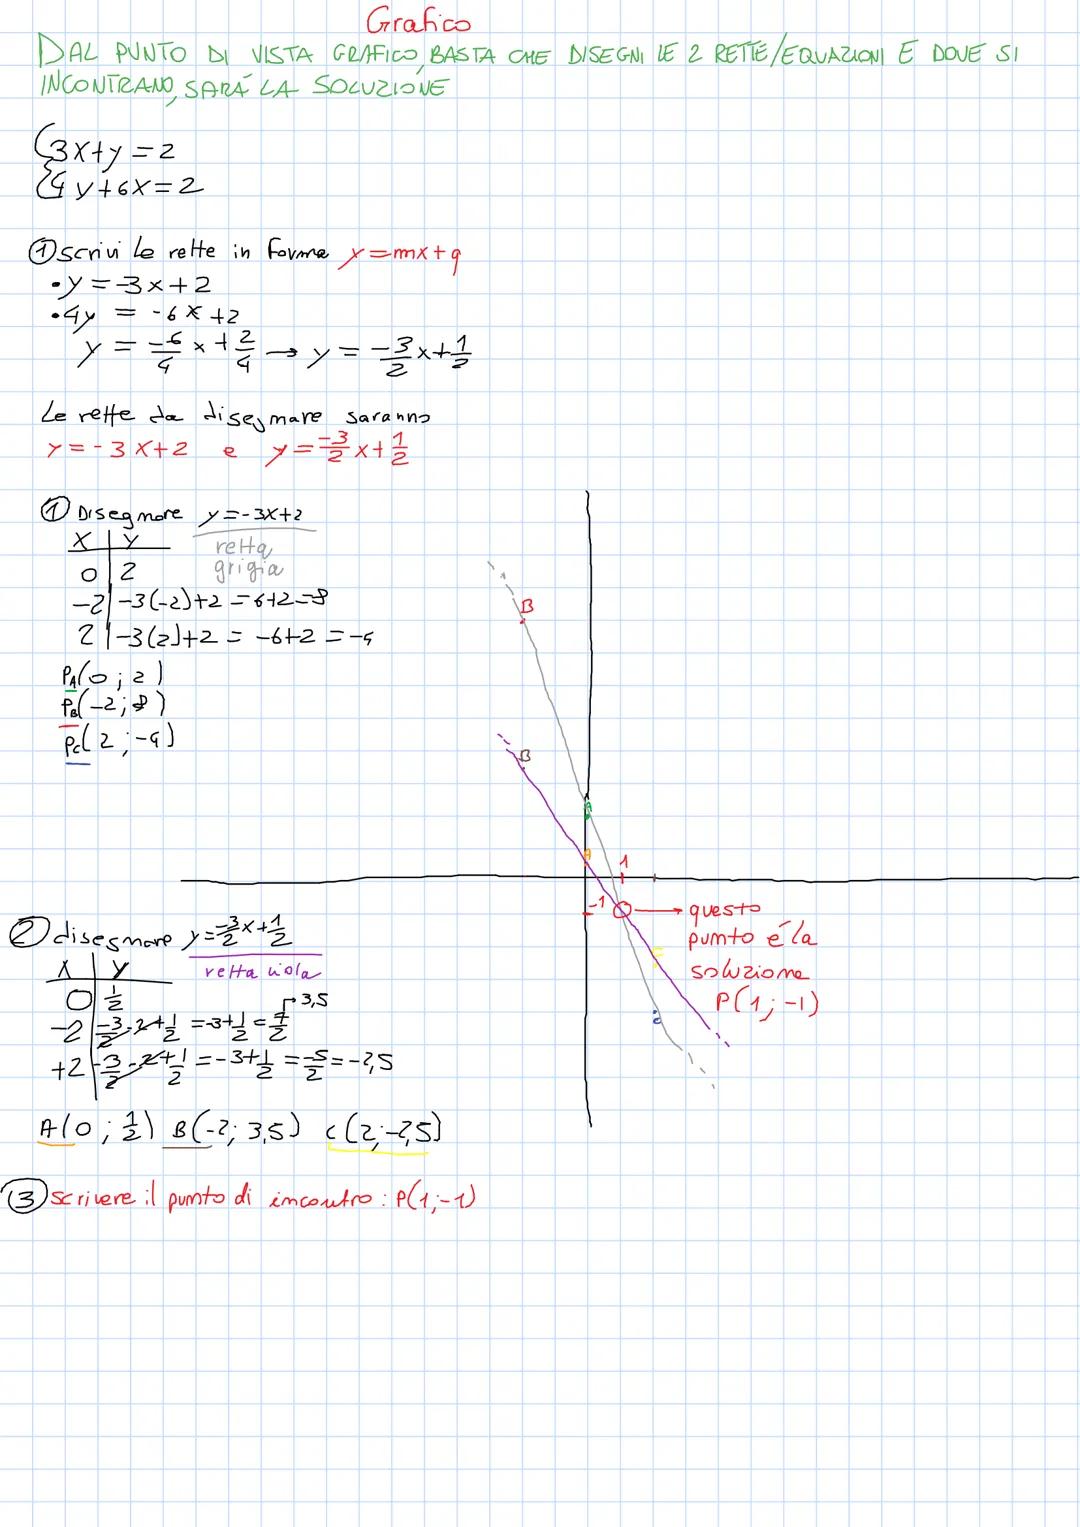 Grafico
DAL PUNTO DI VISTA GRAFICO, BASTA CHE DISEGNI LE 2 RETTE/EQUAZIONI E DOVE SI
INCONTRANO, SARÁ LA SOLUZIONE
{3x+y=2
{4y+6x=2
① scrivi le rette in forma y=mx+q
•y=-3x+2
•4y = -6x+2
y = -6/4 x + 2/4 → y = -3/2 x + 1/2
Le rette da disegnare saranno
y=-3x+2 e y=-3/2 x+1/2
① Disegnare y=-3x+2
retta
grigia
x | y
0 | 2
-2 | -3(-2)+2 = 6+2=8
2 | -3(2)+2 = -6+2 = -4
PA(0; 2)
PB(-2; 8)
PC(2; -4)
B
B
A
A
1
-1
C
C
→ questo
punto é la
soluzione
P(1; -1)
② disegnare y=-3/2 x+1/2
retta viola
x | y
0 | 1/2
-2 | -3/2·2+1/2 = -3+1/2 = 7/2 → 3,5
+2 | -3/2·2+1/2 = -3+1/2 = -5/2 = -2,5
A(0; 1/2) B(-2; 3,5) C(2; -2,5)
③ scrivere il punto di incontro: P(1; -1)